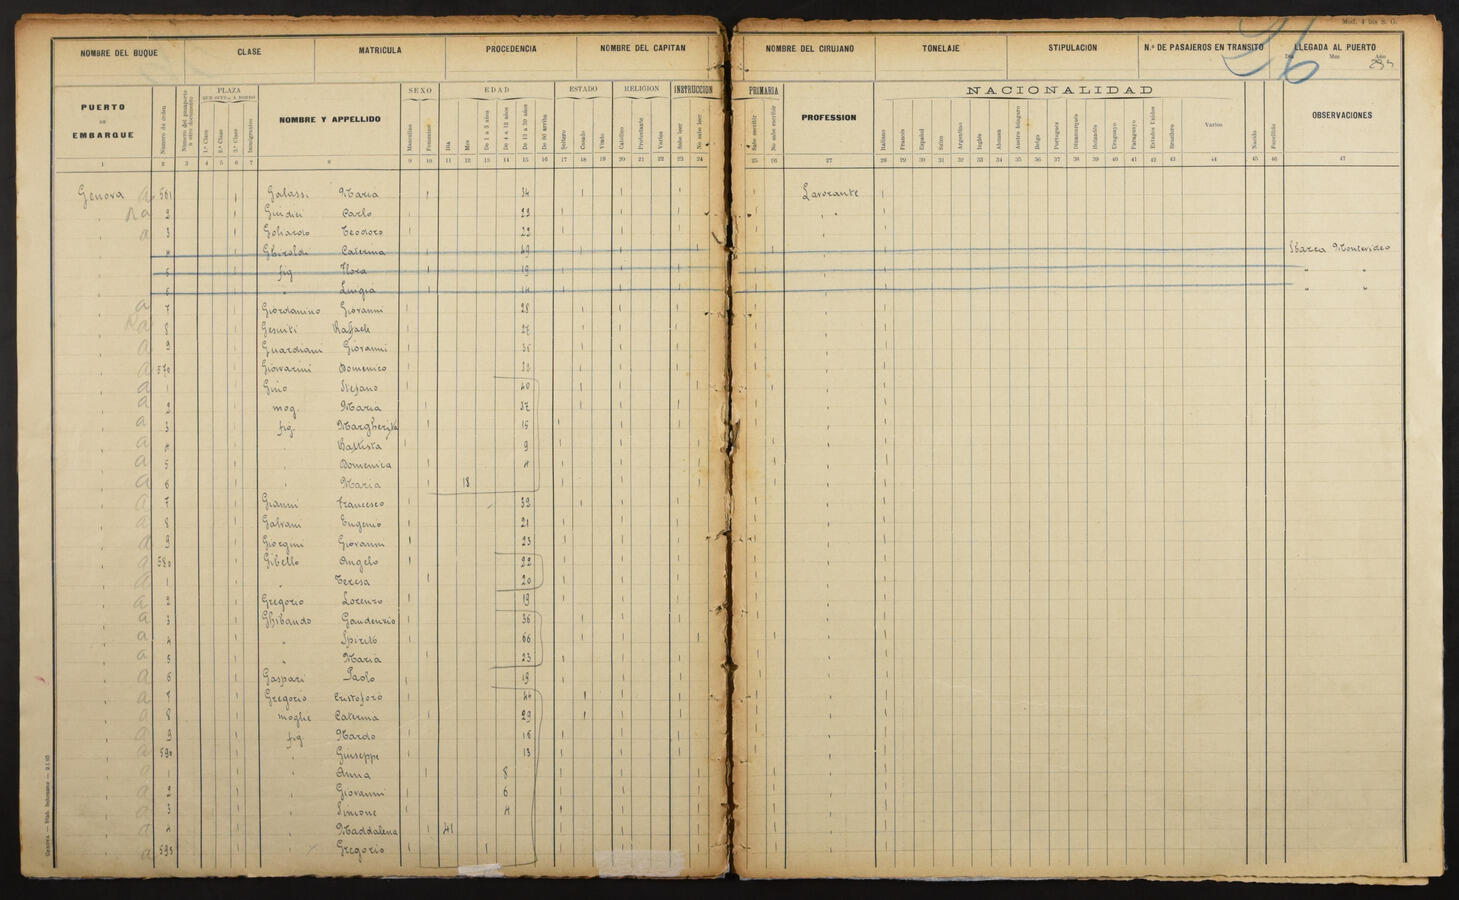 Mod. 4 bis S. G.
26
NOMBRE DEL BUQUE CLASE MATRICULA PROCEDENCIA NOMBRE DEL CAPITAN NOMBRE DEL CIRUJANO TONELAJE STIPULACION N.º DE PASAJEROS EN TRANSITO LLEGADA AL PUERTO
Dia Mes Año
PUERTO DE EMBARQUE Número de orden Número del pasaporte u otro documento PLAZA 1.ª Clase 2.ª Clase 3.ª Clase Inmigrantes NOMBRE Y APPELLIDO SEXO Masculino Femenino EDAD Dia Mes De 1 a 3 años De 4 a 12 años De 13 a 59 años De 60 arriba ESTADO Soltero Casado Viudo RELIGION Católico Protestante Varios INSTRUCCION Sabe leer No sabe leer PRIMARIA Sabe escribir No sabe escribir PROFESSION NACIONALIDAD Italiano Francés Español Suizo Argentino Inglés Aleman Austro húngaro Belga Portugues Dinamarqués Holandés Uruguayo Paraguayo Estados Unidos Brasilero Varios Nacido Fallecido OBSERVACIONES
1 2 3 4 5 6 7 8 9 10 11 12 13 14 15 16 17 18 19 20 21 22 23 24 25 26 27 28 29 30 31 32 33 34 35 36 37 38 39 40 41 42 43 44 45 46 47
Genova a 561 Galassi Maria 34 Lavorante
a 2 Giudici Carlo 23
a 3 Teodoro 22
4 Ghiroldi Caterina 49 Sbarca Montevideo
5 fig Flora 19 " "
6 " Luigia 14 " "
a 7 Giordanino Giovanni 28
a 8 Gesuiti Raffaele 27
a 9 Guardiani Giovanni 35
a 570 Giovanini Domenico
a 1 Gino Stefano 40
a 2 mog. Maria 37
a 3 fig. Margherita 15
a 4 " Battista 9
a 5 Domenica 4
a 6 " Maria 18
a 7 Gianni Francesco 39
a 8 Galvani Eugenio 21
a 9 Giorgini Giovanni 23
a 580 Gibello Angelo 22
a 1 " Teresa 20
a 2 Gregorio Lorenzo 19
a 3 Ghibaudo Gaudenzio 36
a 4 " Spirito 66
a 5 " Maria 23
a 6 Gaspari Paolo 19
a 7 Gregorio Cristoforo 44
a 8 moglie Caterina 29
a 9 fig. Nardo 16
a 590 " Giuseppe 13
a 1 " Anna 8
a 2 " Giovanni 6
a 3 " Simone 4
a 4 " Maddalena 11
a 595 " Gregorio